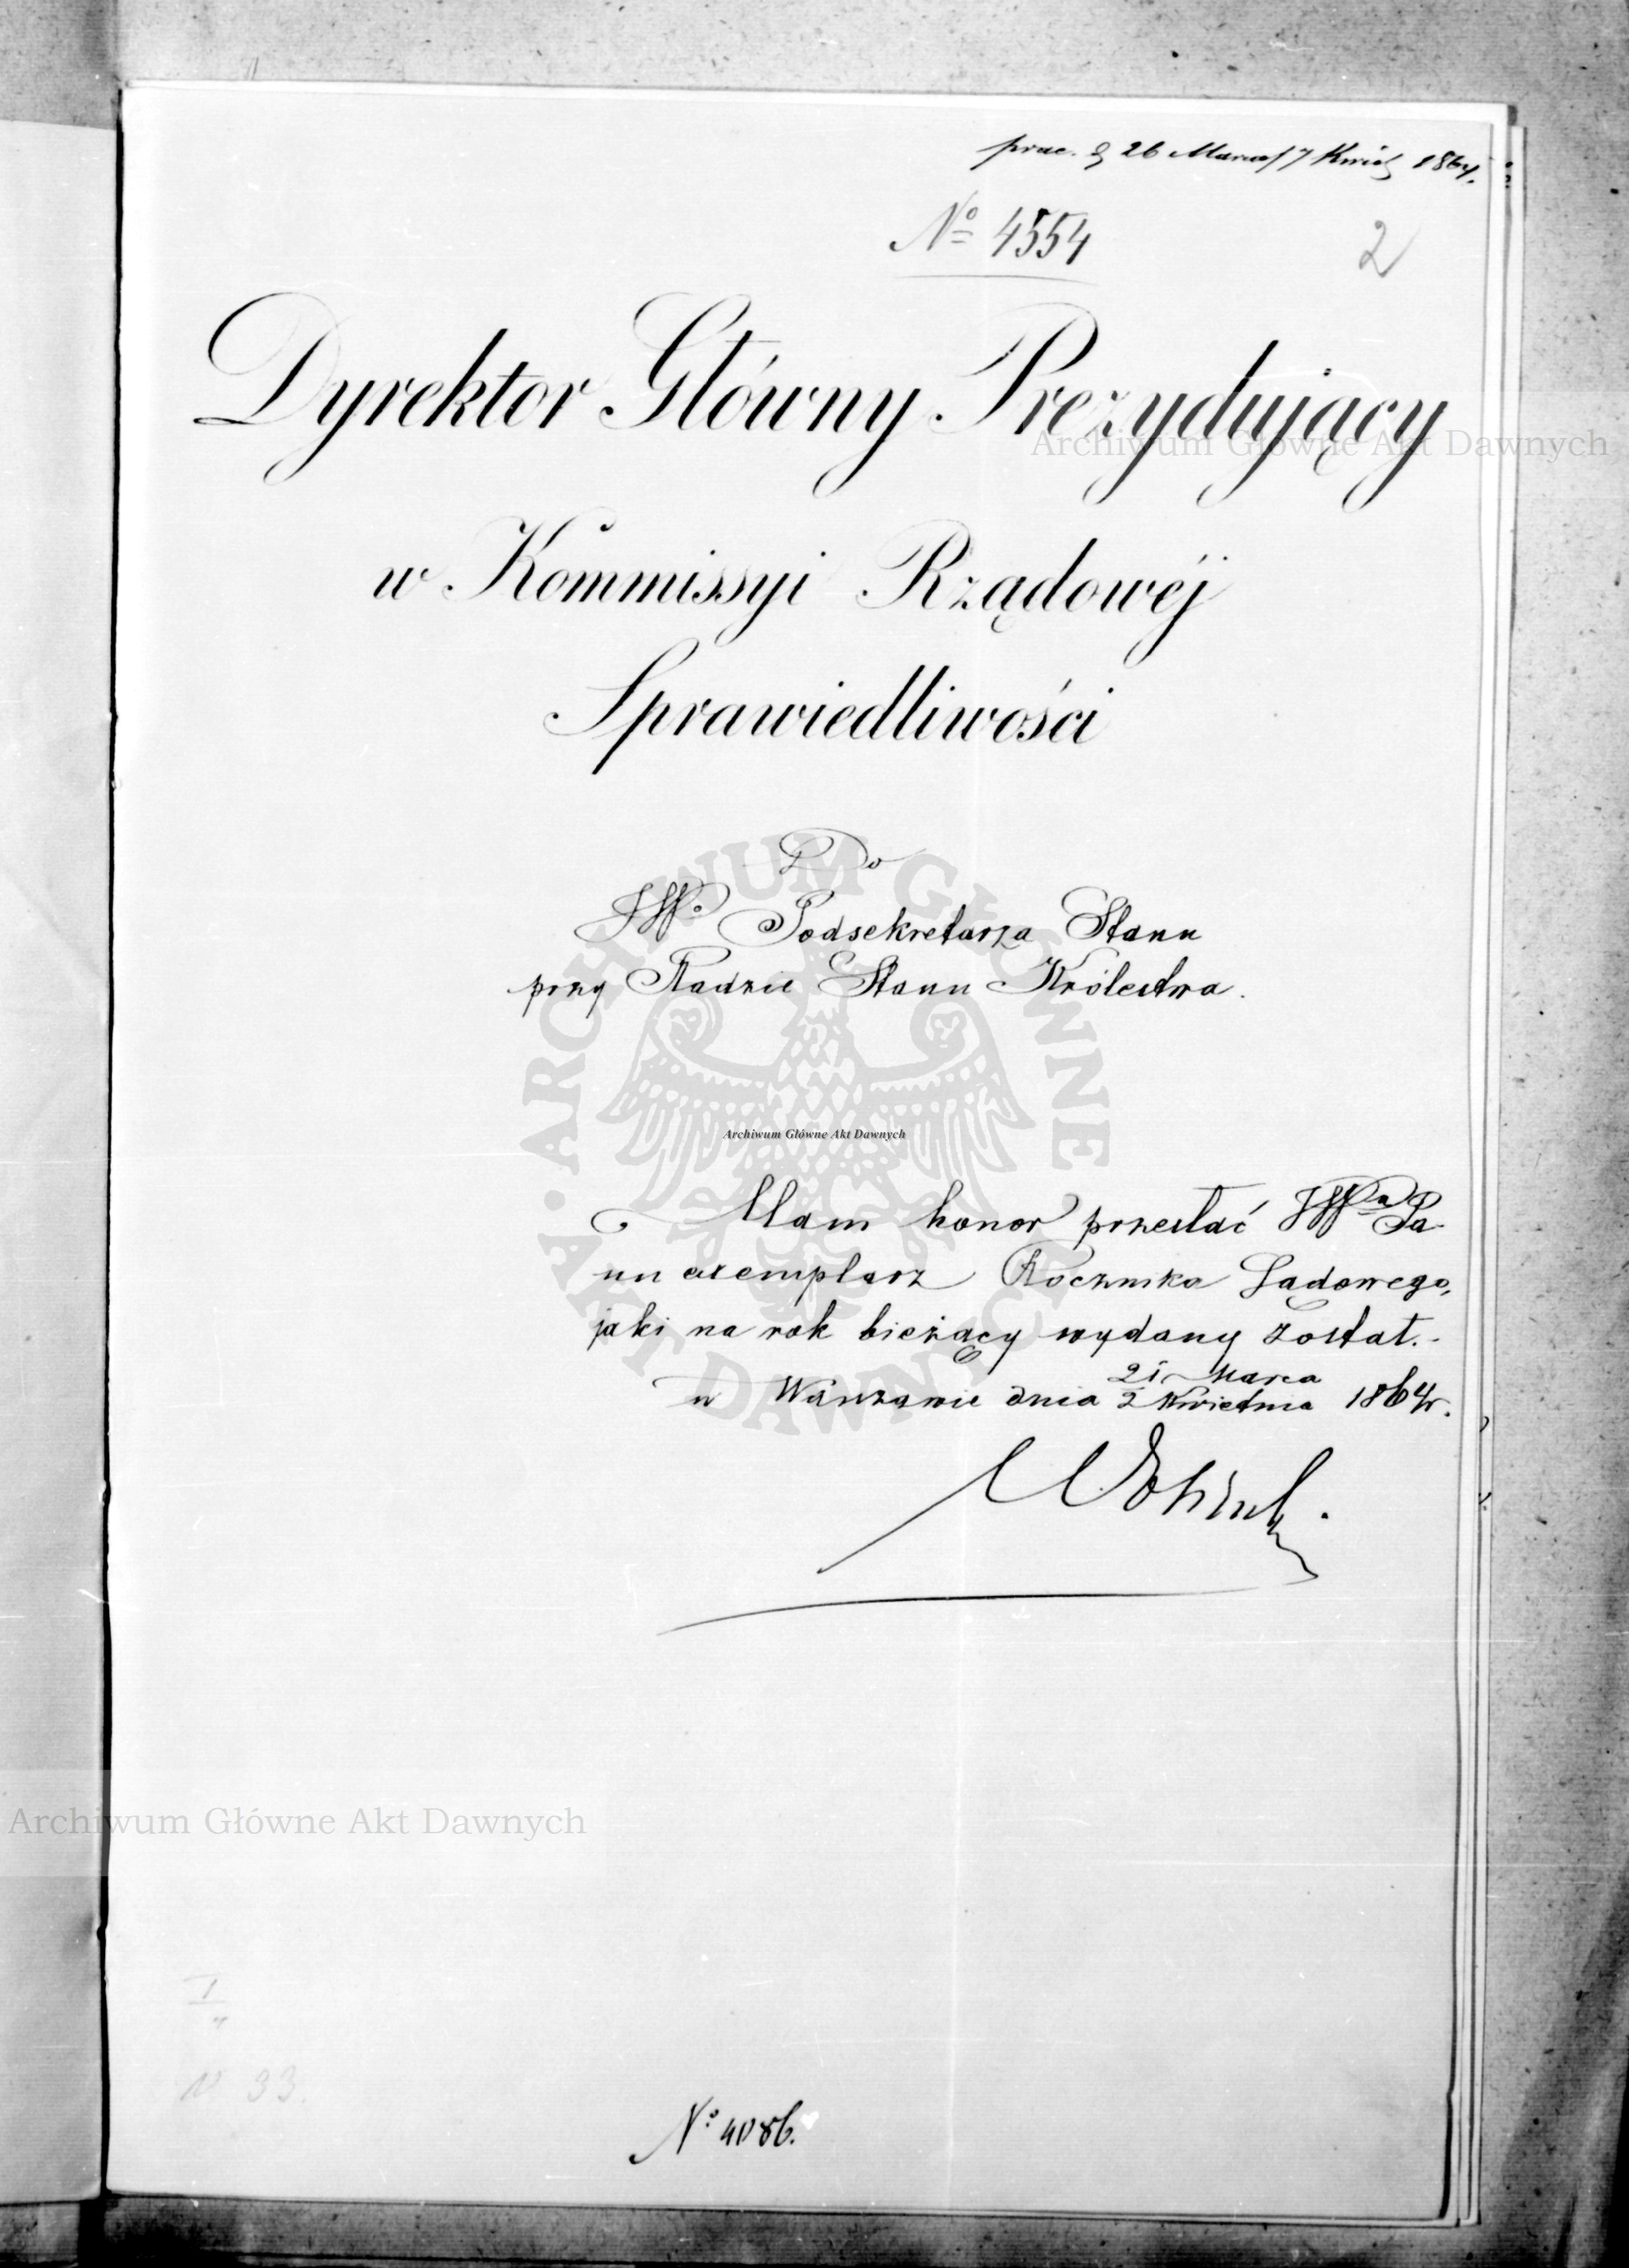 prae. d 26 Marca/7 Kwiet 1864.
Nº 4554
2
Dyrektor Główny Prezydujący
w Kommissyi Rządowéj
Sprawiedliwości
Do
JWº Podsekretarza Stanu
przy Radzie Stanu Królestwa.
Mam honor przesłać JWⁿ Pa-
nu exemplarz Rocznika Sądowego,
jaki na rok bieżący wydany został.-
w Warszawie dnia 21 Marca / 2 Kwietnia 1864 r.
Nº 33.
Nº 4086.
Archiwum Główne Akt Dawnych
ARCHIWUM GŁÓWNE AKT DAWNYCH
Archiwum Główne Akt Dawnych
Archiwum Główne Akt Dawnych